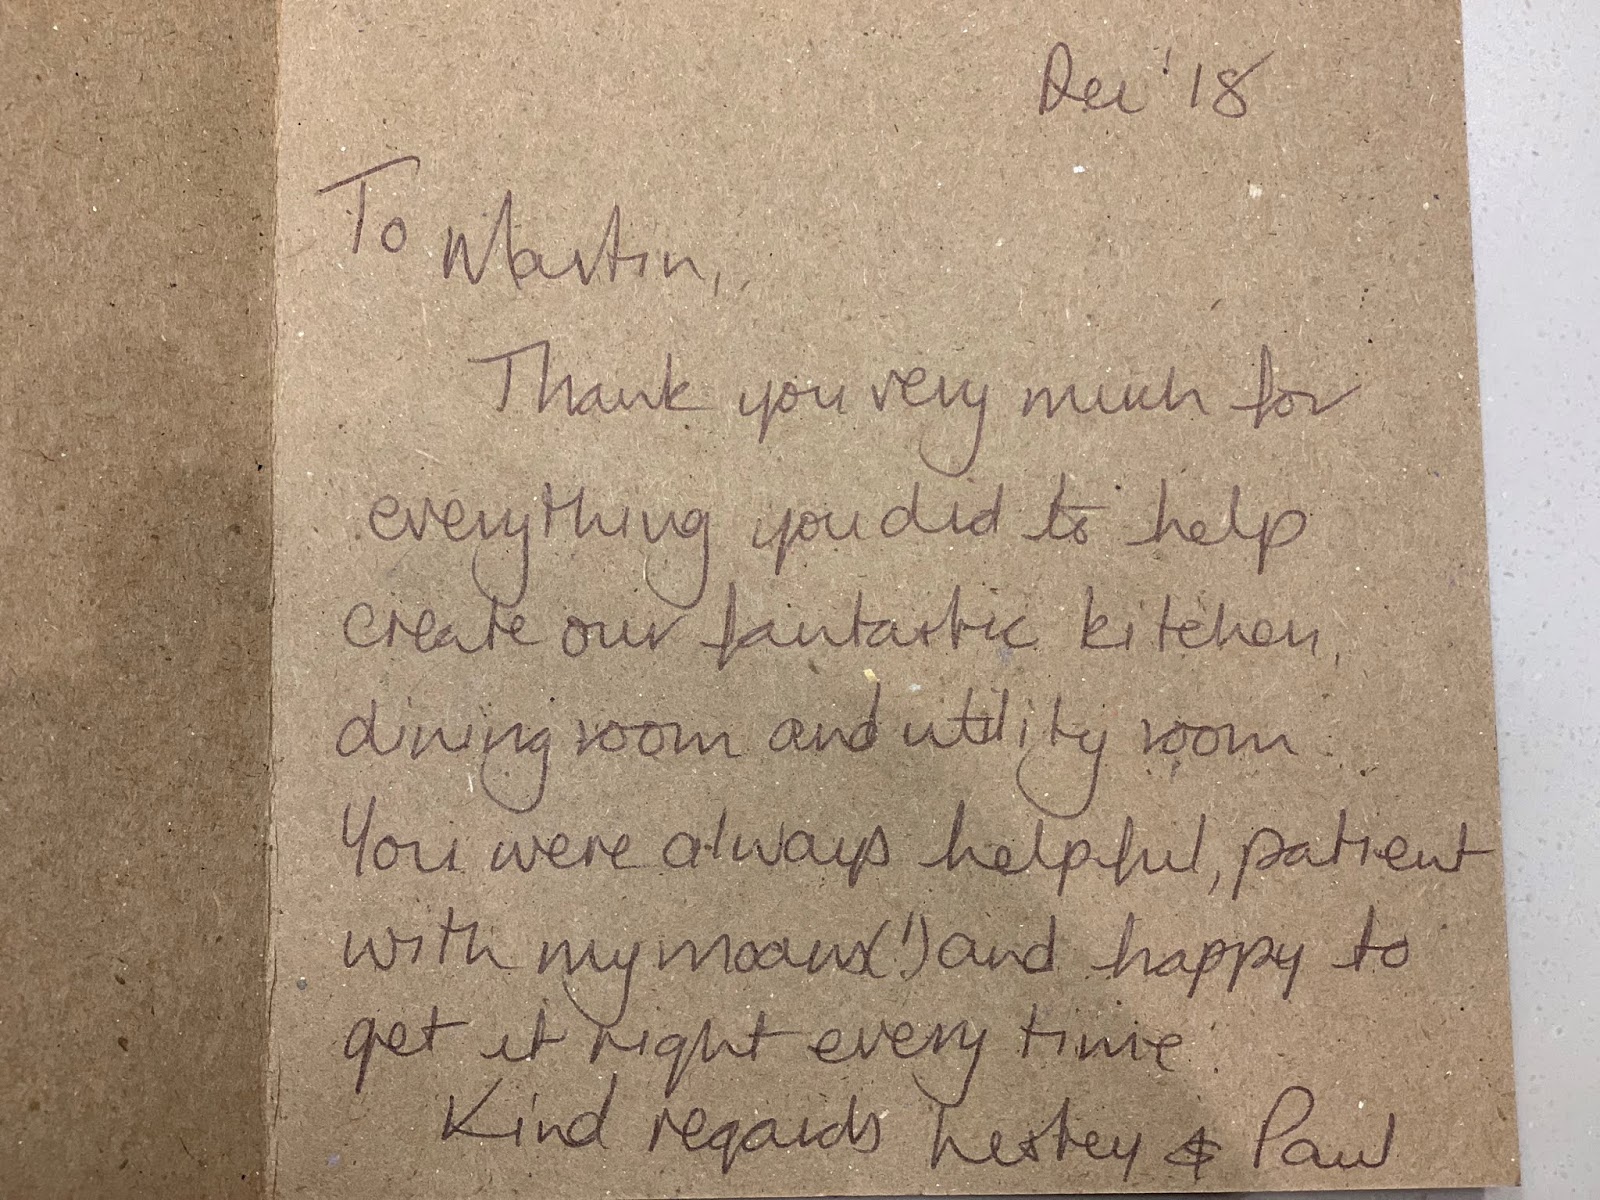 Dec '18
To Martin,
Thank you very much for
everything you did to help
create our fantastic kitchen,
dining room and utility room.
You were always helpful, patient
with my moans(!) and happy to
get it right every time.
Kind regards Lesley & Paul